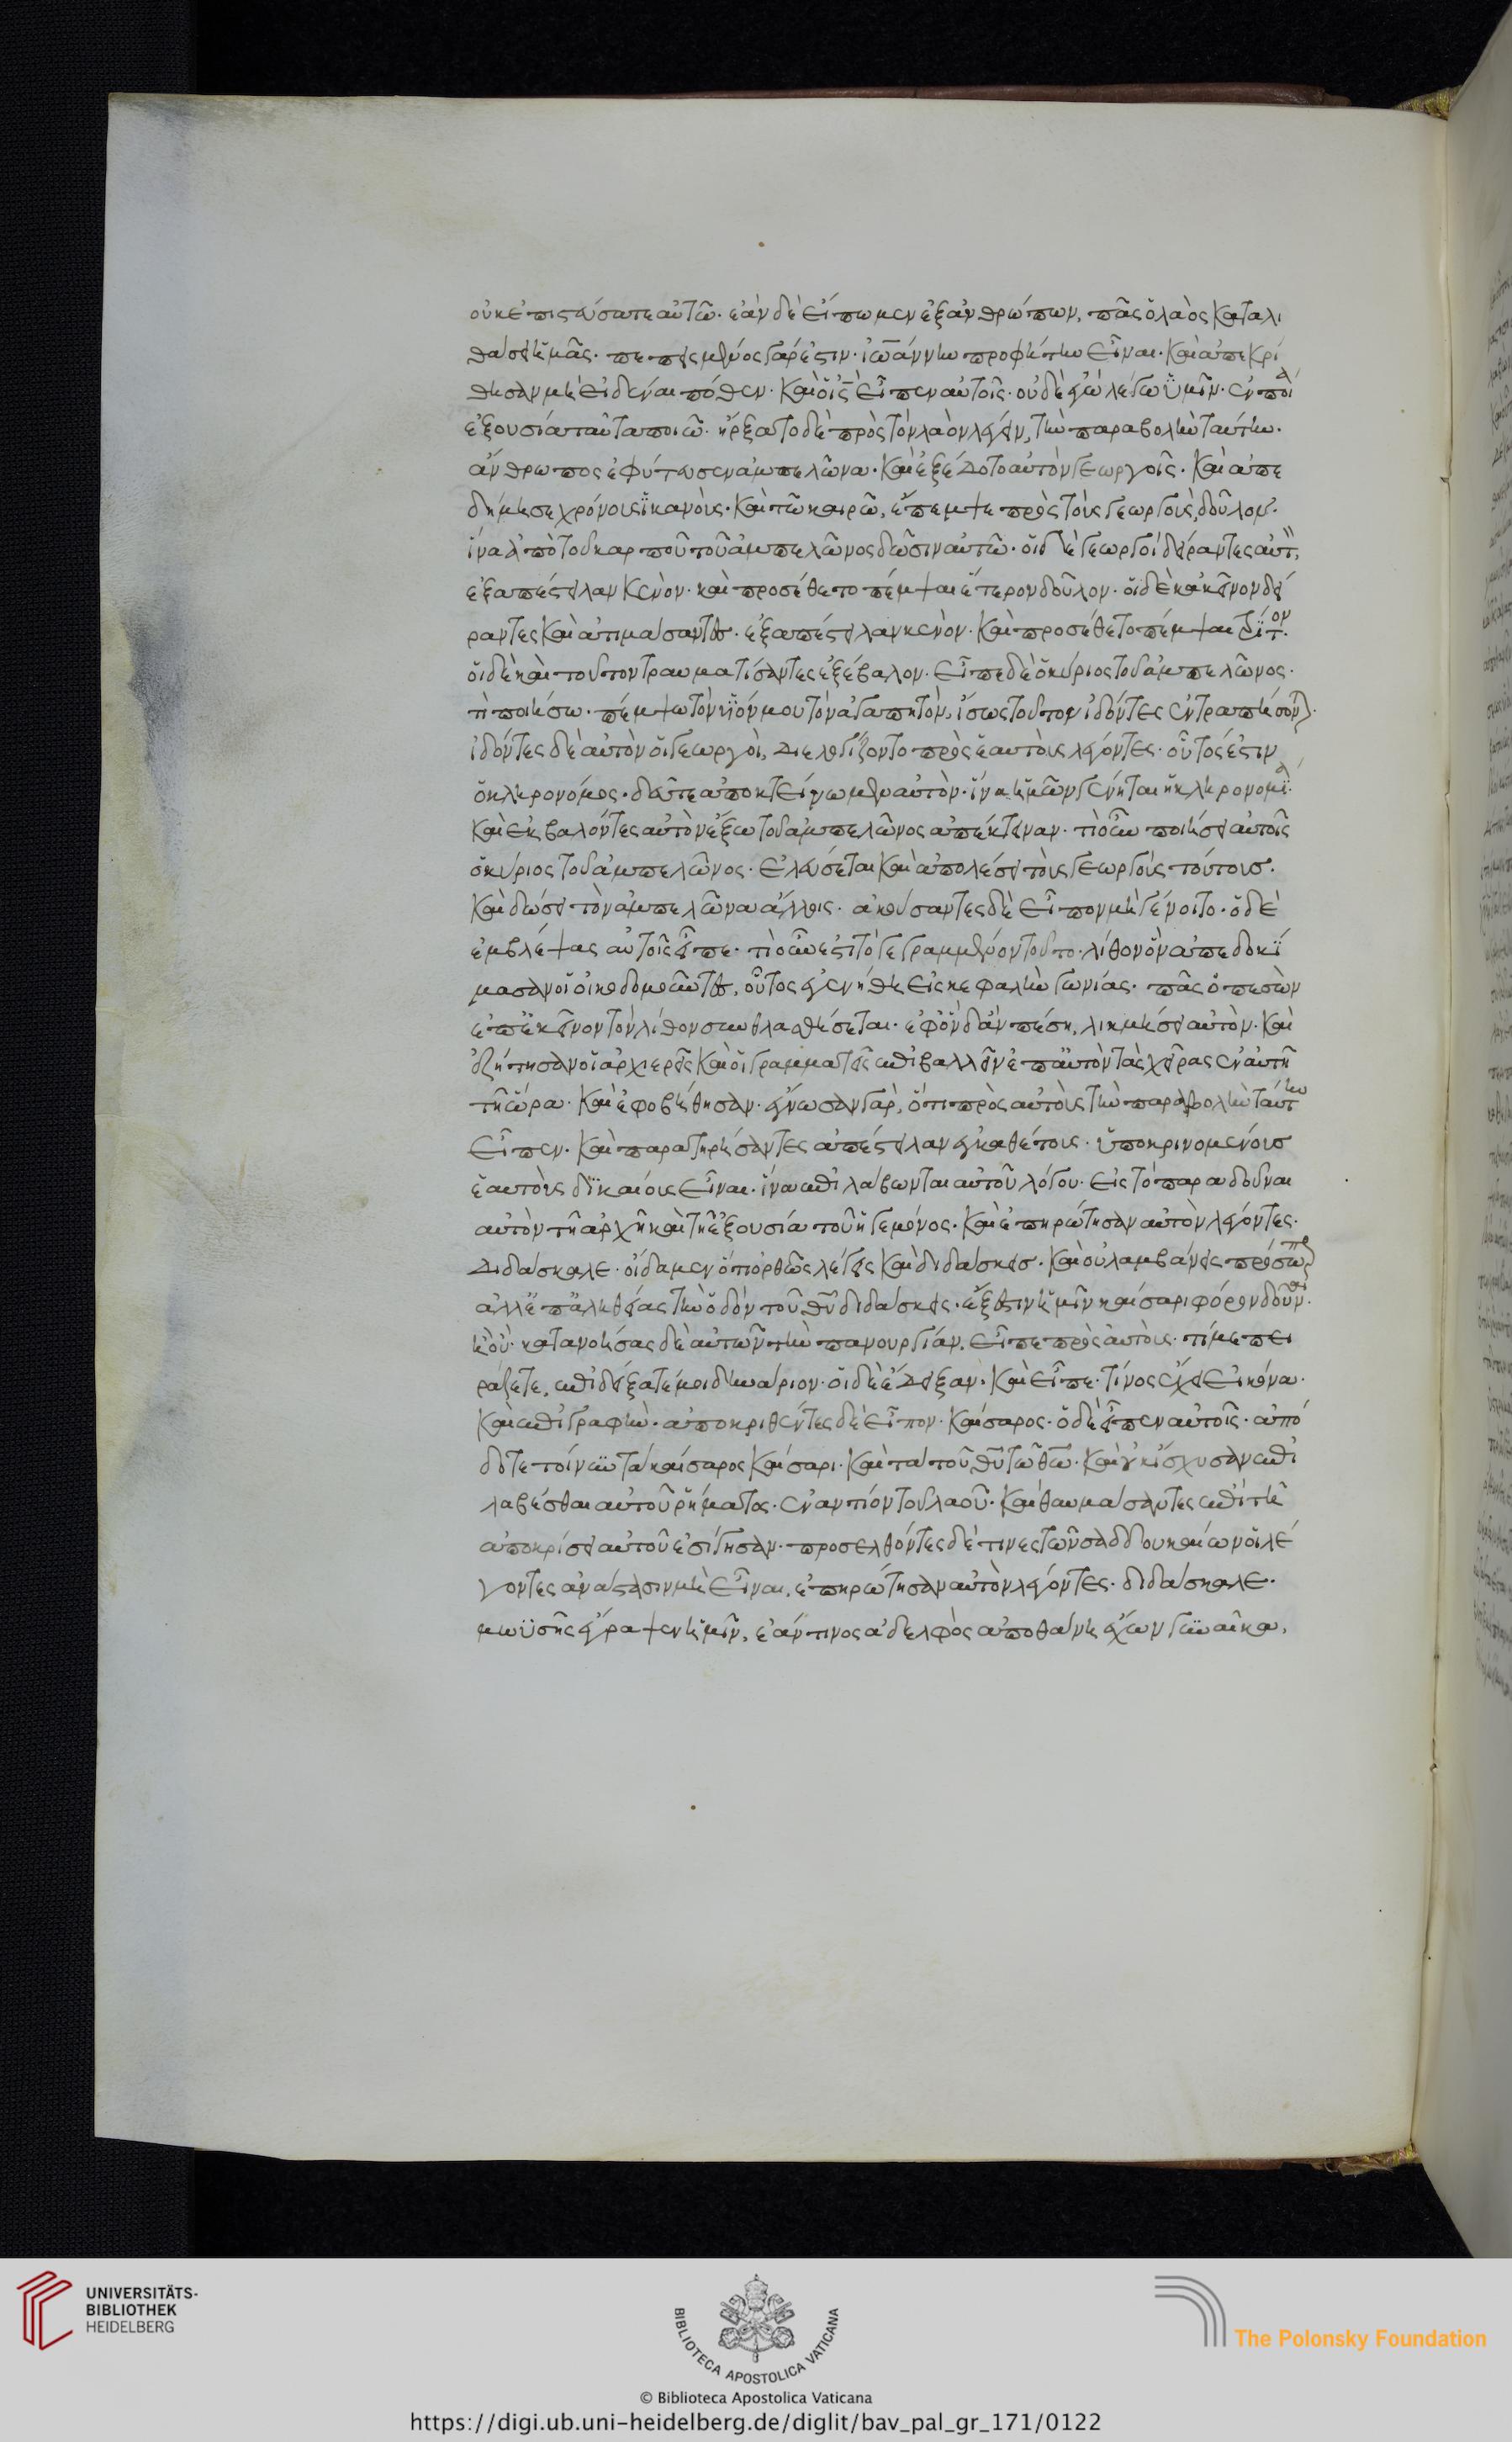 οὐκ ἐπιστεύσατε αὐτῶ· ἐὰν δὲ εἴπωμεν ἐξ ἀνθρώπων, πᾶς ὁ λαὸς καταλι
θάσει ἡμᾶς· πεπεισμένος γάρ ἐστιν· ἰωάννην προφήτην εἶναι· καὶ ἀπεκρί
θησαν μὴ εἰδέναι πόθεν· καὶ ὁ ις̄ εἶπεν αὐτοῖς· οὐδὲ ἐγὼ λέγω ὑμῖν· ἐν ποία
ἐξουσία ταῦτα ποιῶ· ἤρξατο δὲ πρὸς τὸν λαὸν λέγειν, τὴν παραβολὴν ταύτην·
ἄνθρωπος ἐφύτευσεν ἀμπελῶνα· καὶ ἐξέδοτο αὐτὸν γεωργοῖς· καὶ ἀπε
δήμησε χρόνους ἱκανοὺς· καὶ τῶ καιρῶ, ἔπεμψε πρὸς τοὺς γεωργοὺς, δοῦλον·
ἵνα ἀπὸ τοῦ καρποῦ τοῦ ἀμπελῶνος δῶσιν αὐτῶ· οἱ δὲ γεωργοὶ δείραντες αὐτὸν,
ἐξαπέστειλαν κενὸν· καὶ προσέθετο πέμψαι ἕτερον δοῦλον· οἱ δὲ κἀκεῖνον δεί
ραντες καὶ ἀτιμάσαντες· ἐξαπέστειλαν κενὸν· καὶ προσέθετο πέμψαι τρίτον·
οἱ δὲ καὶ τοῦτον τραυματίσαντες ἐξέβαλον· εἶπε δὲ ὁ κύριος τοῦ ἀμπελῶνος·
τὶ ποιήσω· πέμψω τὸν υἱόν μου τὸν ἀγαπητὸν, ἴσως τοῦτον ἰδόντες ἐντραπήσονται·
ἰδόντες δὲ αὐτὸν οἱ γεωργοὶ, διελογίζοντο πρὸς ἑαυτοὺς λέγοντες· οὗτός ἐστιν
ὁ κληρονόμος· δεῦτε ἀποκτείνωμεν αὐτὸν· ἵνα ἡμῶν γένηται ἡ κληρονομία·
καὶ ἐκβαλόντες αὐτὸν ἔξω τοῦ ἀμπελῶνος ἀπέκτειναν· τὶ οὖν ποιήσει αὐτοῖς
ὁ κύριος τοῦ ἀμπελῶνος· ἐλεύσεται καὶ ἀπολέσει τοὺς γεωργοὺς τούτους·
καὶ δώσει τὸν ἀμπελῶνα ἄλλοις· ἀκούσαντες δὲ εἶπον μὴ γένοιτο· ὁ δὲ
ἐμβλέψας αὐτοῖς εἶπε· τὶ οὖν ἐστὶ τὸ γεγραμμένον τοῦτο· λίθον ὃν ἀπεδοκί
μασαν οἱ οἰκοδομοῦντες, οὗτος ἐγενήθη εἰς κεφαλὴν γωνίας· πᾶς ὁ πεσὼν
ἐπ' ἐκεῖνον τὸν λίθον συνθλασθήσεται· ἐφ' ὃν δ' ἂν πέση, λικμήσει αὐτὸν· καὶ
ἐζήτησαν οἱ ἀρχιερεῖς καὶ οἱ γραμματεῖς ἐπιβαλλεῖν ἐπ' αὐτὸν τὰς χεῖρας ἐν αὐτῆ
τῆ ὥρα· καὶ ἐφοβήθησαν· ἔγνωσαν γὰρ, ὅτι πρὸς αὐτοὺς τὴν παραβολὴν ταύτην
εἶπεν· καὶ παρατηρήσαντες ἀπέστειλαν ἐγκαθέτους· ὑποκρινομένους
ἑαυτοὺς δικαίους εἶναι· ἵνα ἐπιλάβωνται αὐτοῦ λόγου· εἰς τὸ παραδοῦναι
αὐτὸν τῆ ἀρχῆ καὶ τῆ ἐξουσία τοῦ ἡγεμόνος· καὶ ἐπηρώτησαν αὐτὸν λέγοντες·
διδάσκαλε· οἴδαμεν ὅτι ὀρθῶς λέγεις καὶ διδάσκεις· καὶ οὐ λαμβάνεις πρόσωπον
ἀλλ' ἐπ' ἀληθείας τὴν ὁδὸν τοῦ θῦ διδάσκεις· ἔξεστιν ἡμῖν καίσαρι φόρον δοῦναι·
ἢ οὐ· κατανοήσας δὲ αὐτῶν τὴν πανουργίαν, εἶπε πρὸς αὐτοὺς· τί με πει
ράζετε, ἐπιδείξατέ μοι δηνάριον· οἱ δὲ ἔδειξαν· καὶ εἶπε· τίνος ἔχει εἰκόνα·
καὶ ἐπιγραφὴν· ἀποκριθέντες δὲ εἶπον· καίσαρος· ὁ δὲ εἶπεν αὐτοῖς· ἀπό
δοτε τοίνυν τὰ καίσαρος καίσαρι· καὶ τὰ τοῦ θῦ τῶ θῶ· καὶ οὐκ ἴσχυσαν ἐπι
λαβέσθαι αὐτοῦ ῥήματος· ἐναντίον τοῦ λαοῦ· καὶ θαυμάσαντες ἐπὶ τῆ
ἀποκρίσει αὐτοῦ ἐσίγησαν· προσελθόντες δέ τινες τῶν σαδδουκαίων οἱ λέ
γοντες ἀνάστασιν μὴ εἶναι, ἐπηρώτησαν αὐτὸν λέγοντες· διδάσκαλε·
μωϋσῆς ἔγραψεν ἡμῖν, ἐάν τινος ἀδελφὸς ἀποθάνη ἔχων γυναῖκα,
UNIVERSITÄTS-
BIBLIOTHEK
HEIDELBERG
BIBLIOTECA APOSTOLICA VATICANA
The Polonsky Foundation
© Biblioteca Apostolica Vaticana
https://digi.ub.uni-heidelberg.de/diglit/bav_pal_gr_171/0122